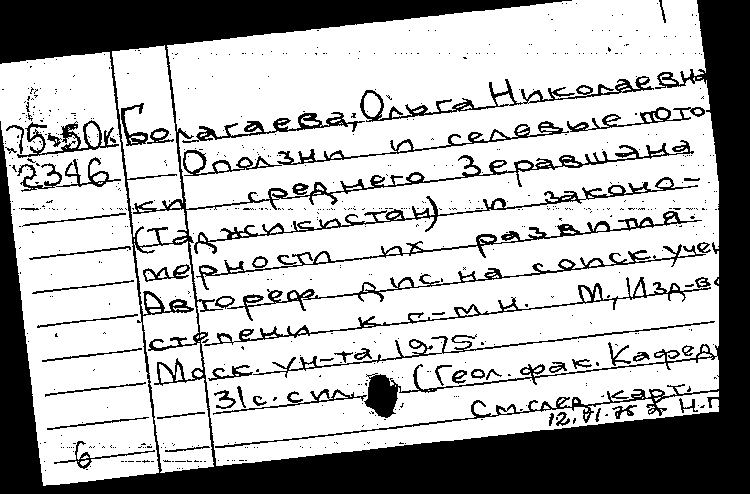 75-50к Болагаева, Ольга Николаевна
2346 Оползни и селевые пото-
ки среднего Зеравшана
(Таджикистан) и законо-
мерности их развития.
Автореф. дис. на соиск. учен
степени к. г.-м. н. М., Изд-во
Моск. ун-та, 1975.
31 с. с ил. (Геол. фак. Кафед
См. след. карт.
6